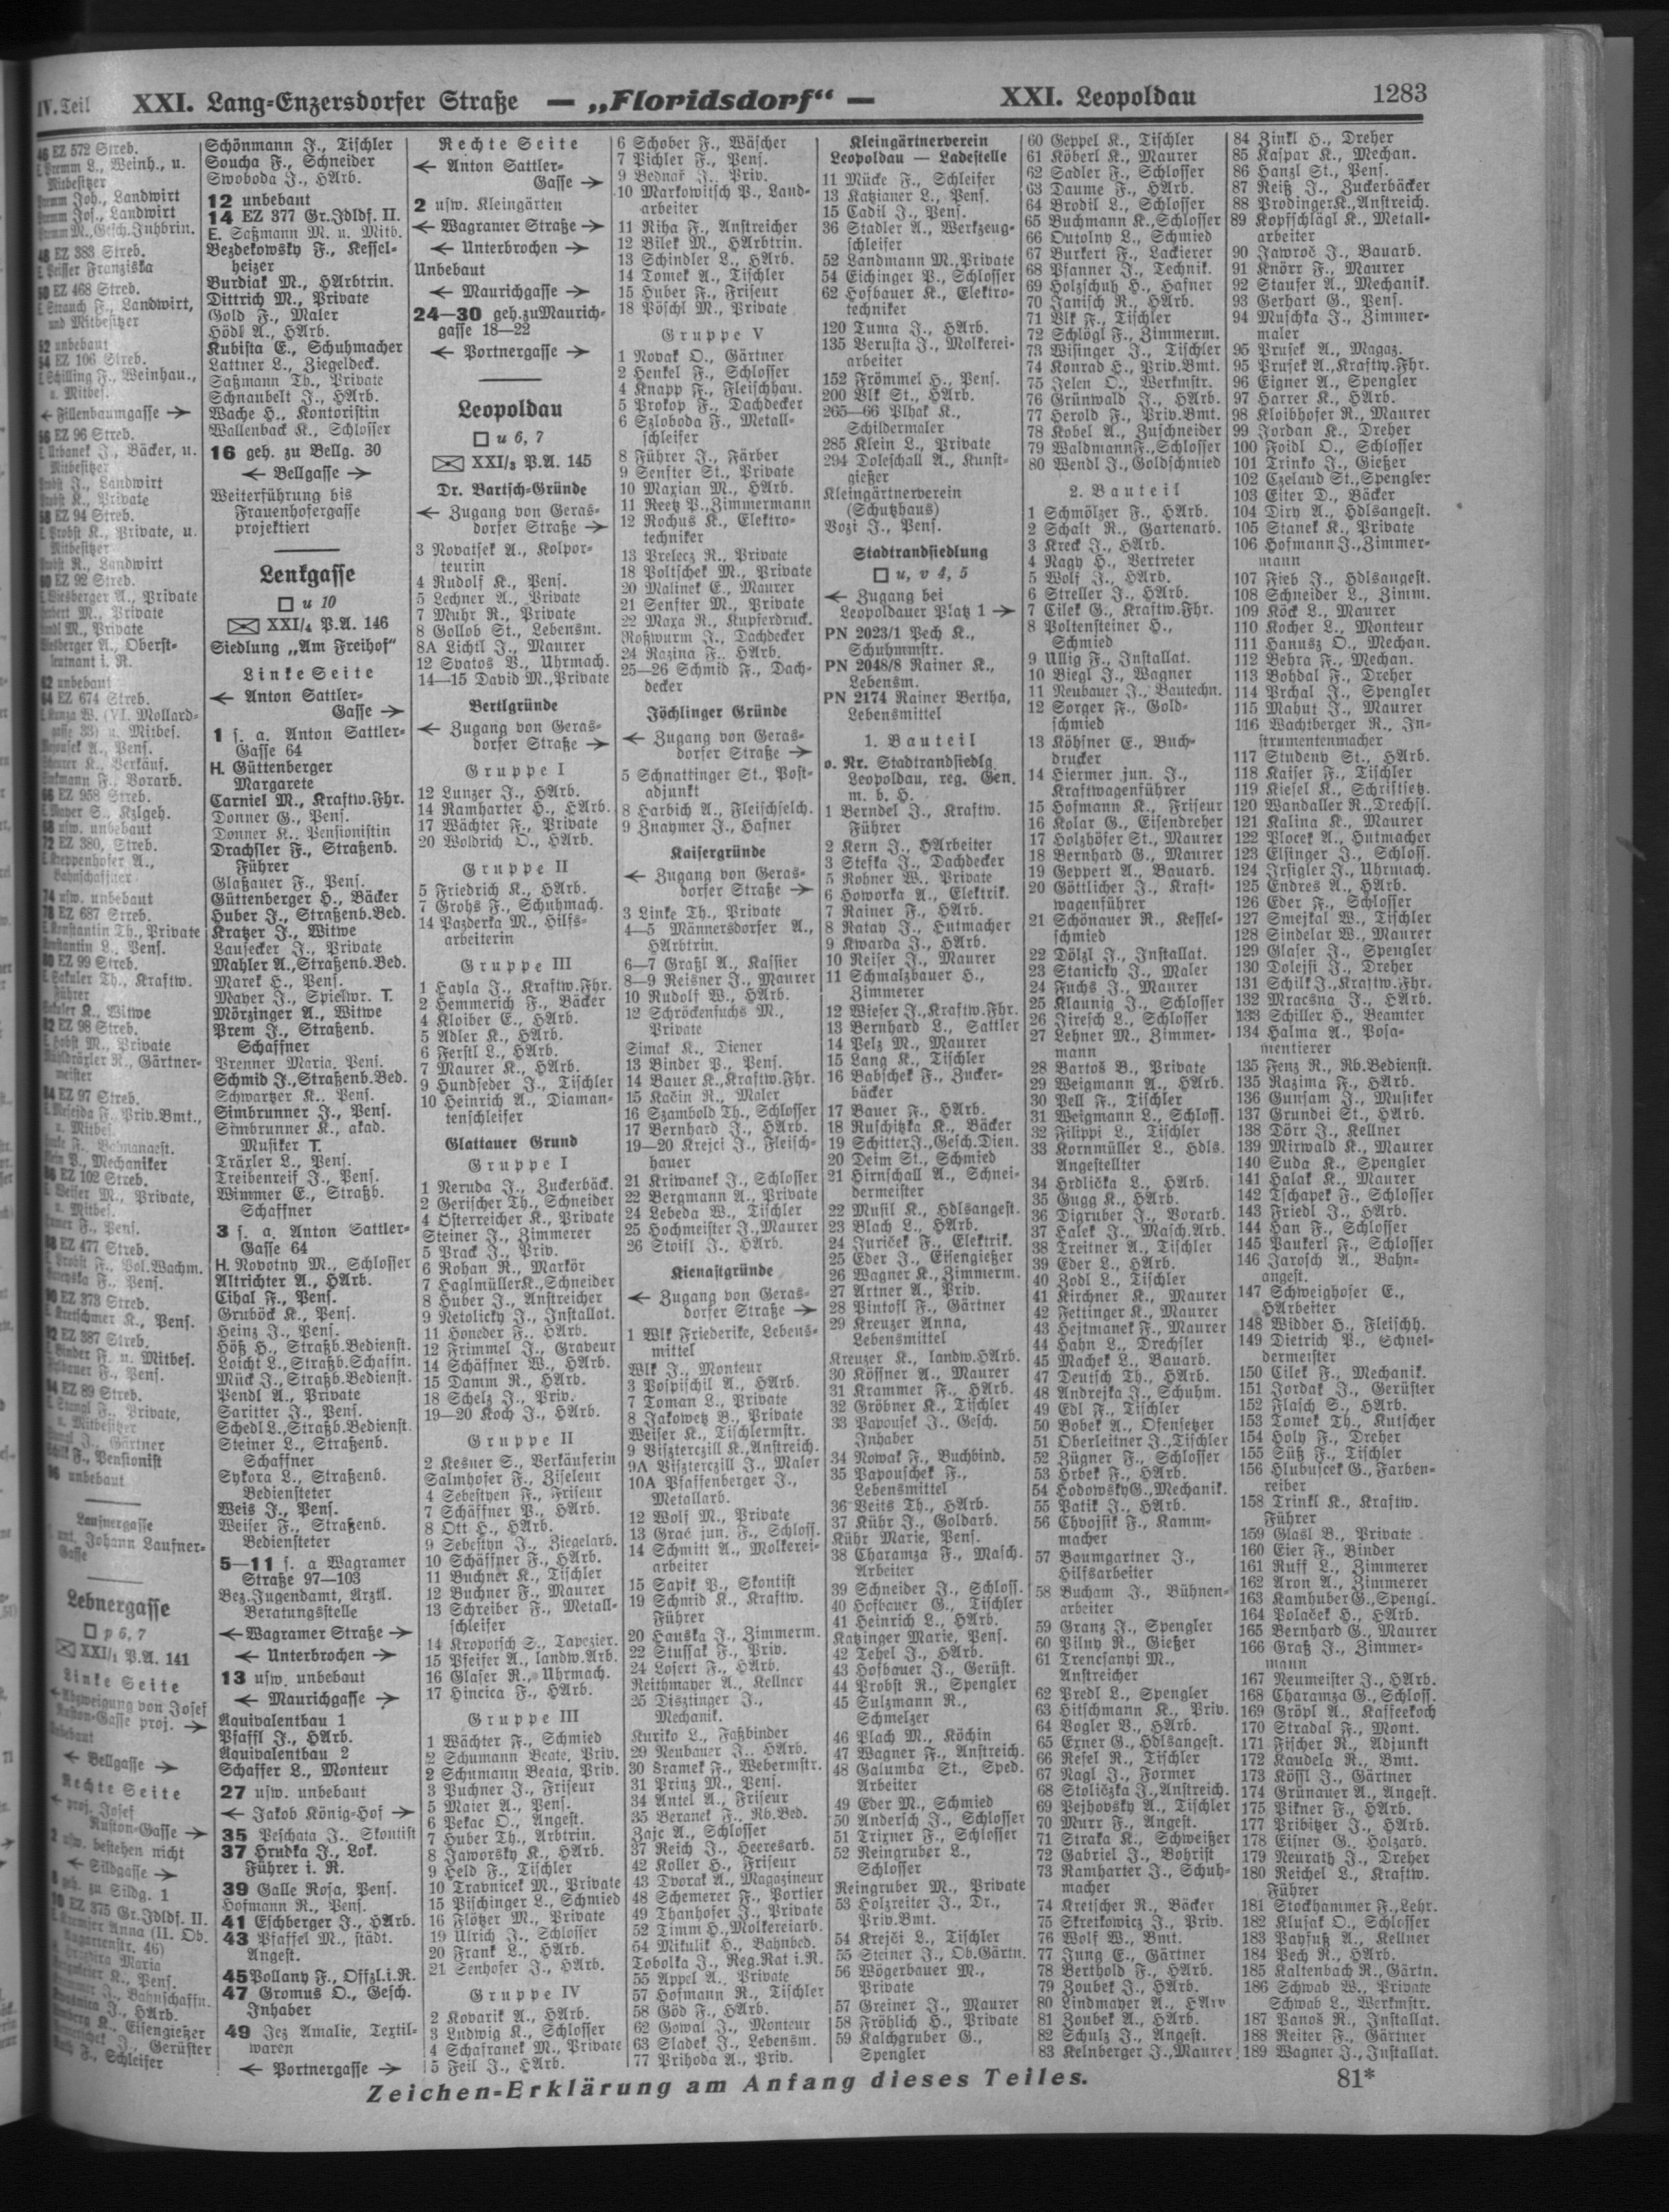 IV. Teil XXI. Lang-Enzersdorfer Straße — „Floridsdorf“ — XXI. Leopoldau 1283
46 EZ 572 Streb.
Weinh., u.
Mitbesitzer
Joh., Landwirt
Jos., Landwirt
48 EZ 383 Streb.
Franziska
50 EZ 468 Streb.
E. Strauch F., Landwirt,
und Mitbesitzer
52 unbebaut
54 EZ 106 Streb.
E. Schilling F., Weinhau.,
u. Mitbes.
← Fillenbaumgasse →
56 EZ 96 Streb.
E. Urbanek J., Bäcker, u.
Mitbesitzer
J., Landwirt
K., Private
58 EZ 94 Streb.
E. Probst K., Private, u.
Mitbesitzer
R., Landwirt
60 EZ 92 Streb.
E. Wiesberger A., Private
M., Private
M., Private
Wiesberger A., Oberst-
leutnant i. R.
62 unbebaut
64 EZ 674 Streb.
E. Kunza W. (VI. Mollard-
gasse 33) u. Mitbes.
A., Pens.
K., Verkäuf.
F., Vorarb.
66 EZ 958 Streb.
E. Mayer S., Kzlgeh.
68 usw. unbebaut
72 EZ 380, Streb.
A.,
Bahnschaffner
74 usw. unbebaut
78 EZ 687 Streb.
E. Konstantin Th., Private
Konstantin L., Pens.
80 EZ 99 Streb.
Th., Kraftw.
Führer
K., Witwe
82 EZ 98 Streb.
M., Private
R., Gärtner-
meister
84 EZ 97 Streb.
F., Priv.Bmt.,
u. Mitbes.
P., Mechaniker
86 EZ 102 Streb.
E. Weiser M., Private,
u. Mitbes.
F., Pens.
88 EZ 477 Streb.
E. Probst F., Pol.Wachm.
F., Pens.
90 EZ 373 Streb.
E. Kretschmer K., Pens.
92 EZ 387 Streb.
E. Binder F. u. Mitbes.
F., Pens.
94 EZ 89 Streb.
E. Stangl F., Private,
u. Mitbesitzer
J., Gärtner
F., Pensionist
96 unbebaut
Laufnergasse
Johann Laufner-
Gasse
Lebnergasse
□ p 6, 7
XXI/1 P.A. 141
Linke Seite
← Abzweigung von Josef
Ruston-Gasse proj. →
Unbebaut
← Bellgasse →
Rechte Seite
← proj. Josef
Ruston-Gasse →
2 usw. bestehen nicht
← Sildgasse →
8 geh. zu Sildg. 1
10 EZ 375 Gr.Jdldf. II.
Anna (II. Ob.
Augartenstr. 46)
Maria
K., Pens.
J., Bahnschaffn.
J., HArb.
K., Eisengießer
J., Gerüster
F., Schleifer
Schönmann J., Tischler
Soucha F., Schneider
Swoboda J., HArb.
12 unbebaut
14 EZ 377 Gr.Jdldf. II.
E. Saßmann M. u. Mitb.
Bezdekowsky F., Kessel-
heizer
Burdiak M., HArbtrin.
Dittrich M., Private
Gold F., Maler
Hödl A., HArb.
Kubista E., Schuhmacher
Lattner L., Ziegeldeck.
Saßmann Th., Private
Schnaubelt J., HArb.
Wache H., Kontoristin
Wallenback K., Schlosser
16 geh. zu Bellg. 30
← Bellgasse →
Weiterführung bis
Frauenhofergasse
projektiert
Lenkgasse
□ u 10
XXI/4 P.A. 146
Siedlung „Am Freihof“
Linke Seite
← Anton Sattler-
Gasse →
1 s. a. Anton Sattler-
Gasse 64
H. Güttenberger
Margarete
Carniel M., Kraftw.Fhr.
Donner G., Pens.
Donner K., Pensionistin
Drachsler F., Straßenb.
Führer
Glaßauer F., Pens.
Güttenberger H., Bäcker
Huber J., Straßenb.Bed.
Kratzer J., Witwe
Lausecker J., Private
Mahler A., Straßenb.Bed.
Marek H., Pens.
Mayer J., Spielwr. T.
Mörzinger A., Witwe
Prem J., Straßenb.
Schaffner
Prenner Maria, Pens.
Schmid J., Straßenb.Bed.
Schwartzer K., Pens.
Simbrunner J., Pens.
Simbrunner K., akad.
Musiker T.
Träxler L., Pens.
Treibenreif J., Pens.
Wimmer E., Straßb.
Schaffner
3 s. a. Anton Sattler-
Gasse 64
H. Novotny M., Schlosser
Altrichter A., HArb.
Cihal F., Pens.
Gruböck K., Pens.
Heinz J., Pens.
Höß H., Straßb.Bedienst.
Loicht L., Straßb.Schaffn.
Mück J., Straßb.Bedienst.
Pendl A., Private
Saritter J., Pens.
Schedl L., Straßb.Bedienst.
Steiner L., Straßenb.
Schaffner
Sykora L., Straßenb.
Bediensteter
Weis J., Pens.
Weiser F., Straßenb.
Bediensteter
5—11 s. a Wagramer
Straße 97—103
Bez.Jugendamt, Ärztl.
Beratungsstelle
← Wagramer Straße →
← Unterbrochen →
13 usw. unbebaut
← Maurichgasse →
Äquivalentbau 1
Pfaffl J., HArb.
Äquivalentbau 2
Schaffer L., Monteur
27 usw. unbebaut
← Jakob König-Hof →
35 Peschata J., Skontist
37 Hrudka J., Lok.
Führer i. R.
39 Galle Rosa, Pens.
Hofmann R., Pens.
41 Eschberger J., HArb.
43 Pfaffel M., städt.
Angest.
45 Pollany F., Offzl.i.R.
47 Gromus O., Gesch.
Inhaber
49 Jez Amalie, Textil-
waren
← Portnergasse →
Rechte Seite
← Anton Sattler-
Gasse →
2 usw. Kleingärten
← Wagramer Straße →
← Unterbrochen →
Unbebaut
← Maurichgasse →
24—30 geh.zuMaurich-
gasse 18—22
← Portnergasse →
Leopoldau
□ u 6, 7
XXI/3 P.A. 145
Dr. Bartsch-Gründe
← Zugang von Geras-
dorfer Straße →
3 Novatsek A., Kolpor-
teurin
4 Rudolf K., Pens.
5 Lechner A., Private
7 Muhr R., Private
8 Gollob St., Lebensm.
8A Lichtl J., Maurer
12 Svatos V., Uhrmach.
14—15 David M., Private
Bertlgründe
← Zugang von Geras-
dorfer Straße →
Gruppe I
12 Lunzer J., HArb.
14 Ramharter H., HArb.
17 Wächter F., Private
20 Woldrich O., HArb.
Gruppe II
5 Friedrich K., HArb.
7 Grohs F., Schuhmach.
14 Pazderka M., Hilfs-
arbeiterin
Gruppe III
1 Hayla J., Kraftw.Fhr.
2 Hemmerich F., Bäcker
4 Kloiber E., HArb.
5 Adler K., HArb.
6 Ferstl L., HArb.
7 Maurer K., HArb.
9 Hundseder J., Tischler
10 Heinrich A., Diaman-
tenschleifer
Glattauer Grund
Gruppe I
1 Neruda J., Zuckerbäck.
2 Gerischer Th., Schneider
4 Österreicher K., Private
Steiner J., Zimmerer
5 Prack J., Priv.
6 Rohan R., Markör
7 Haglmüller K., Schneider
8 Huber J., Anstreicher
9 Netolicky J., Installat.
11 Honeder F., HArb.
12 Frimmel J., Graveur
14 Schäffner W., HArb.
15 Damm R., HArb.
18 Schelz J., Priv.
19—20 Koch J., HArb.
Gruppe II
2 Kesner S., Verkäuferin
Salmhofer F., Ziseleur
4 Sebestyen F., Friseur
7 Schäffner P., HArb.
8 Ott H., HArb.
9 Sebestyn J., Ziegelarb.
10 Schäffner F., HArb.
11 Buchner K., Tischler
12 Buchner F., Maurer
13 Schreiber F., Metall-
schleifer
14 Kropotsch S., Tapezier.
15 Pfeifer A., landw.Arb.
16 Glaser R., Uhrmach.
17 Hincica F., HArb.
Gruppe III
1 Wächter F., Schmied
2 Schumann Beate, Priv.
2 Schumann Beata, Priv.
3 Puchner J., Friseur
5 Maier A., Pens.
6 Pekac O., Angest.
7 Huber Th., Arbtrin.
8 Jaworsky K., HArb.
9 Held F., Tischler
10 Travnicek M., Private
15 Pischinger L., Schmied
16 Flötzer M., Private
19 Ulrich J., Schlosser
20 Frank L., HArb.
21 Senhofer J., HArb.
Gruppe IV
2 Kovarik A., HArb.
3 Ludwig K., Schlosser
4 Schafranek M., Private
5 Feil J., HArb.
6 Schober F., Wäscher
7 Pichler F., Pens.
9 Bednař J., Priv.
10 Markowitsch P., Land-
arbeiter
11 Riha F., Anstreicher
12 Bilek M., HArbtrin.
13 Schindler L., HArb.
14 Tomek A., Tischler
15 Huber F., Friseur
18 Pöschl M., Private
Gruppe V
1 Novak O., Gärtner
2 Henkel F., Schlosser
4 Knapp F., Fleischhau.
5 Prokop F., Dachdecker
6 Szloboda F., Metall-
schleifer
8 Führer J., Färber
9 Senfter St., Private
10 Maxian M., HArb.
11 Reetz P., Zimmermann
12 Rochus K., Elektro-
techniker
13 Prelecz R., Private
18 Poltschek M., Private
20 Malinek E., Maurer
21 Senfter M., Private
22 Maxa R., Kupferdruck.
Roßwurm J., Dachdecker
24 Razina F., HArb.
25—26 Schmid F., Dach-
decker
Jöchlinger Gründe
← Zugang von Geras-
dorfer Straße →
5 Schnattinger St., Post-
adjunkt
8 Harbich A., Fleischselch.
9 Znaymer J., Hafner
Kaisergründe
← Zugang von Geras-
dorfer Straße →
3 Linke Th., Private
4—5 Männersdorfer A.,
HArbtrin.
6—7 Graßl A., Kassier
8—9 Reisner J., Maurer
10 Rudolf W., HArb.
12 Schröckenfuchs M.,
Private
Simak K., Diener
13 Binder P., Pens.
14 Bauer K., Kraftw.Fhr.
15 Kačin R., Maler
16 Szambold Th., Schlosser
17 Bernhard J., HArb.
19—20 Krejci J., Fleisch-
hauer
21 Kriwanek J., Schlosser
22 Bergmann A., Private
24 Lebeda W., Tischler
25 Hochmeister J., Maurer
26 Stoißl J., HArb.
Kienastgründe
← Zugang von Geras-
dorfer Straße →
1 Wlk Friederike, Lebens-
mittel
Wlk J., Monteur
3 Pospischil A., HArb.
7 Toman L., Private
8 Jakowetz B., Private
Weiser K., Tischlermstr.
9 Viszterczill K., Anstreich.
9A Viszterczill J., Maler
10A Pfaffenberger J.,
Metallarb.
12 Wolf M., Private
13 Grač jun. F., Schloss.
14 Schmitt A., Molkerei-
arbeiter
15 Sapik P., Skontist
19 Schmid K., Kraftw.
Führer
20 Hauska J., Zimmerm.
22 Stuffak F., Priv.
24 Losert F., HArb.
Reithmayer A., Kellner
25 Disztinger J.,
Mechanik.
Kuriko L., Faßbinder
29 Neubauer J., HArb.
30 Sramek F., Webermstr.
31 Prinz M., Pens.
34 Antel A., Friseur
35 Beranek F., Rb.Bed.
Zajc A., Schlosser
37 Reich J., Heeresarb.
42 Koller H., Friseur
43 Dvorak A., Magazineur
48 Schemerer F., Portier
49 Thanhofer J., Private
52 Timm H., Molkereiarb.
54 Mikulik H., Bahnbed.
Tobolka J., Reg.Rat i.R.
55 Appel A., Private
57 Hofmann R., Tischler
58 Göd F., HArb.
62 Gowal J., Monteur
63 Sladek J., Lebensm.
77 Prihoda A., Priv.
Kleingärtnerverein
Leopoldau — Ladestelle
11 Mücke F., Schleifer
13 Katzianer L., Pens.
15 Cadil J., Pens.
36 Stadler A., Werkzeug-
schleifer
52 Landmann M., Private
54 Eichinger P., Schlosser
62 Hofbauer K., Elektro-
techniker
120 Tuma J., HArb.
135 Berusta J., Molkerei-
arbeiter
152 Frömmel H., Pens.
200 Vlk St., HArb.
265—66 Plhak K.,
Schildermaler
285 Klein L., Private
294 Doleschall A., Kunst-
gießer
Kleingärtnerverein
(Schutzhaus)
Vozi J., Pens.
Stadtrandsiedlung
□ u, v 4, 5
← Zugang bei
Leopoldauer Platz 1 →
PN 2023/1 Pech K.,
Schuhmstr.
PN 2048/8 Rainer K.,
Lebensm.
PN 2174 Rainer Bertha,
Lebensmittel
1. Bauteil
o. Nr. Stadtrandsiedlg.
Leopoldau, reg. Gen.
m. b. H.
1 Berndel J., Kraftw.
Führer
2 Kern J., HArbeiter
3 Stefka J., Dachdecker
5 Rohner W., Private
6 Howorka A., Elektrik.
7 Rainer F., HArb.
8 Ratay J., Hutmacher
9 Kwarda J., HArb.
10 Reiser J., Maurer
11 Schmalzbauer H.,
Zimmerer
12 Wieser J., Kraftw.Fhr.
13 Bernhard L., Sattler
14 Pelz M., Maurer
15 Lang K., Tischler
16 Babschek F., Zucker-
bäcker
17 Bauer F., HArb.
18 Ruschitzka K., Bäcker
19 Schitter J., Gesch.Dien.
20 Deim St., Schmied
21 Hirnschall A., Schnei-
dermeister
22 Musil K., Hdlsangest.
23 Blach L., HArb.
24 Juriček F., Elektrik.
25 Eder J., Eisengießer
26 Wagner K., Zimmerm.
27 Artner A., Priv.
28 Pintofl F., Gärtner
29 Kreuzer Anna,
Lebensmittel
Kreuzer K., landw.HArb.
30 Kössner A., Maurer
31 Krammer F., HArb.
32 Gröbner K., Tischler
33 Papousek J., Gesch.
Inhaber
34 Nowak F., Buchbind.
35 Papouschek F.,
Lebensmittel
36 Veits Th., HArb.
37 Kühr J., Goldarb.
Kühr Marie, Pens.
38 Charamza F., Masch.
Arbeiter
39 Schneider J., Schloss.
40 Hofbauer G., Tischler
41 Heinrich L., HArb.
Katzinger Marie, Pens.
42 Tehel J., HArb.
43 Hofbauer J., Gerüst.
44 Probst R., Spengler
45 Sulzmann R.,
Schmelzer
46 Plach M., Köchin
47 Wagner F., Anstreich.
48 Galumba St., Sped.
Arbeiter
49 Eder M., Schmied
50 Andersch J., Schlosser
51 Trixner F., Schlosser
52 Reingruber L.,
Schlosser
Reingruber M., Private
53 Holzreiter J., Dr.,
Priv.Bmt.
54 Krejči L., Tischler
55 Steiner J., Ob.Gärtn.
56 Wögerbauer M.,
Private
57 Greiner J., Maurer
58 Fröhlich H., Private
59 Kalchgruber G.,
Spengler
60 Geppel K., Tischler
61 Köberl K., Maurer
62 Sadler F., Schlosser
63 Daume F., HArb.
64 Brodil L., Schlosser
65 Buchmann K., Schlosser
66 Outolny L., Schmied
67 Burkert F., Lackierer
68 Pfanner J., Technik.
69 Holzschuh H., Hafner
70 Janisch R., HArb.
71 Vlk F., Tischler
72 Schlögl F., Zimmerm.
73 Wisinger J., Tischler
74 Konrad H., Priv.Bmt.
75 Jelen O., Werkmstr.
76 Grünwald J., HArb.
77 Herold F., Priv.Bmt.
78 Kobel A., Zuschneider
79 Waldmann F., Schlosser
80 Wendl J., Goldschmied
2. Bauteil
1 Schmölzer F., HArb.
2 Schalt R., Gartenarb.
3 Kreck J., HArb.
4 Nagy H., Vertreter
5 Wolf J., HArb.
6 Streller J., HArb.
7 Cilek G., Kraftw.Fhr.
8 Poltensteiner H.,
Schmied
9 Ullig F., Installat.
10 Biegl J., Wagner
11 Neubauer J., Bautechn.
12 Sorger F., Gold-
schmied
13 Köhsner E., Buch-
drucker
14 Hiermer jun. J.,
Kraftwagenführer
15 Hofmann K., Friseur
16 Kolar G., Eisendreher
17 Holzhöfer St., Maurer
18 Bernhard G., Maurer
19 Geppert A., Bauarb.
20 Göttlicher J., Kraft-
wagenführer
21 Schönauer R., Kessel-
schmied
22 Dölzl J., Installat.
23 Stanicky J., Maler
24 Fuchs J., Maurer
25 Klaunig J., Schlosser
26 Jiresch L., Schlosser
27 Lehner M., Zimmer-
mann
28 Bartos B., Private
29 Weigmann A., HArb.
30 Pell F., Tischler
31 Weigmann L., Schloss.
32 Filippi L., Tischler
33 Kornmüller L., Hdls.
Angestellter
34 Hrdlička L., HArb.
35 Gugg K., HArb.
36 Digruber J., Vorarb.
37 Halek J., Masch.Arb.
38 Treitner A., Tischler
39 Eder L., HArb.
40 Zodl L., Tischler
41 Kirchner K., Maurer
42 Fettinger K., Maurer
43 Hejtmanek F., Maurer
44 Hahn L., Drechsler
45 Machek L., Bauarb.
47 Deutsch Th., HArb.
48 Andrejka J., Schuhm.
49 Edl F., Tischler
50 Bobek A., Ofensetzer
51 Oberleitner J., Tischler
52 Zügner F., Schlosser
53 Hrbek F., HArb.
54 Hodowsky G., Mechanik.
55 Patik J., HArb.
56 Chvojsik F., Kamm-
macher
57 Baumgartner J.,
Hilfsarbeiter
58 Bucham J., Bühnen-
arbeiter
59 Granz J., Spengler
60 Pilny R., Gießer
61 Trencsanyi M.,
Anstreicher
62 Predl L., Spengler
63 Hitschmann K., Priv.
64 Vogler V., HArb.
65 Exner G., Hdlsangest.
66 Resel R., Tischler
67 Nagl J., Former
68 Stoliczka J., Anstreich.
69 Pejhovsky A., Tischler
70 Murr F., Angest.
71 Straka K., Schweißer
72 Gabriel J., Bohrist
73 Ramharter J., Schuh-
macher
74 Kreischer R., Bäcker
75 Skretkowicz J., Priv.
76 Wolf W., Bmt.
77 Jung E., Gärtner
78 Berthold F., HArb.
79 Zoubek J., HArb.
80 Lindmayer A., HArb
81 Zoubek A., HArb.
82 Schulz J., Angest.
83 Kelnberger J., Maurer
84 Zinkl H., Dreher
85 Kaspar K., Mechan.
86 Hanzl St., Pens.
87 Reiß J., Zuckerbäcker
88 Prodinger K., Anstreich.
89 Kopfschlägl K., Metall-
arbeiter
90 Jawroč J., Bauarb.
91 Knörr F., Maurer
92 Staufer A., Mechanik.
93 Gerhart G., Pens.
94 Muschka J., Zimmer-
maler
95 Prusek A., Magaz.
95 Prusek A., Kraftw.Fhr.
96 Eigner A., Spengler
97 Harrer K., HArb.
98 Kloibhofer R., Maurer
99 Jordan K., Dreher
100 Foidl O., Schlosser
101 Trinko J., Gießer
102 Czeland St., Spengler
103 Eiter D., Bäcker
104 Diry A., Hdlsangest.
105 Stanek K., Private
106 Hofmann J., Zimmer-
mann
107 Fieb J., Hdlsangest.
108 Schneider L., Zimm.
109 Köck L., Maurer
110 Kocher L., Monteur
111 Hanusz O., Mechan.
112 Behra F., Mechan.
113 Bohdal F., Dreher
114 Prchal J., Spengler
115 Mahut J., Maurer
116 Wachtberger R., In-
strumentenmacher
117 Studeny St., HArb.
118 Kaiser F., Tischler
119 Kiesel K., Schriftsetz.
120 Wandaller R., Drechsl.
121 Kalina K., Maurer
122 Plocek A., Hutmacher
123 Elsinger J., Schloss.
124 Irsigler J., Uhrmach.
125 Endres A., HArb.
126 Eder F., Schlosser
127 Smejkal W., Tischler
128 Sindelar W., Maurer
129 Glaser J., Spengler
130 Dolejsi J., Dreher
131 Schilk J., Kraftw.Fhr.
132 Mracsna J., HArb.
133 Schiller H., Beamter
134 Halma A., Posa-
mentierer
135 Fenz R., Rb.Bedienst.
135 Razima F., HArb.
136 Gunsam J., Musiker
137 Grundei St., HArb.
138 Dörr J., Kellner
139 Mirwald K., Maurer
140 Suda K., Spengler
141 Halak K., Maurer
142 Tschapek F., Schlosser
143 Friedl J., HArb.
144 Han F., Schlosser
145 Paukerl F., Schlosser
146 Jarosch A., Bahn-
angest.
147 Schweighofer E.,
HArbeiter
148 Widder H., Fleischh.
149 Dietrich P., Schnei-
dermeister
150 Cilek F., Mechanik.
151 Jordak J., Gerüster
152 Flasch S., HArb.
153 Tomek Th., Kutscher
154 Holy F., Dreher
155 Süß F., Tischler
156 Hlubucek G., Farben-
reiber
158 Trinkl K., Kraftw.
Führer
159 Glasl B., Private
160 Eier F., Binder
161 Ruff L., Zimmerer
162 Aron A., Zimmerer
163 Kamhuber G., Spengl.
164 Polaček H., HArb.
165 Bernhard G., Maurer
166 Graß J., Zimmer-
mann
167 Neumeister J., HArb.
168 Charamza G., Schloss.
169 Gröpl A., Kaffeekoch
170 Stradal F., Mont.
171 Fischer R., Adjunkt
172 Kaudela R., Bmt.
173 Kössl J., Gärtner
174 Grünauer A., Angest.
175 Pikner F., HArb.
177 Pribitzer J., HArb.
178 Eisner G., Holzarb.
179 Neurath J., Dreher
180 Reichel L., Kraftw.
Führer
181 Stockhammer F., Lehr.
182 Klujak O., Schlosser
183 Paysuß A., Kellner
184 Pech R., HArb.
185 Kaltenbach R., Gärtn.
186 Schwab W., Private
Schwab L., Werkmstr.
187 Panos R., Installat.
188 Reiter F., Gärtner
189 Wagner J., Installat.
Zeichen-Erklärung am Anfang dieses Teiles.
81*